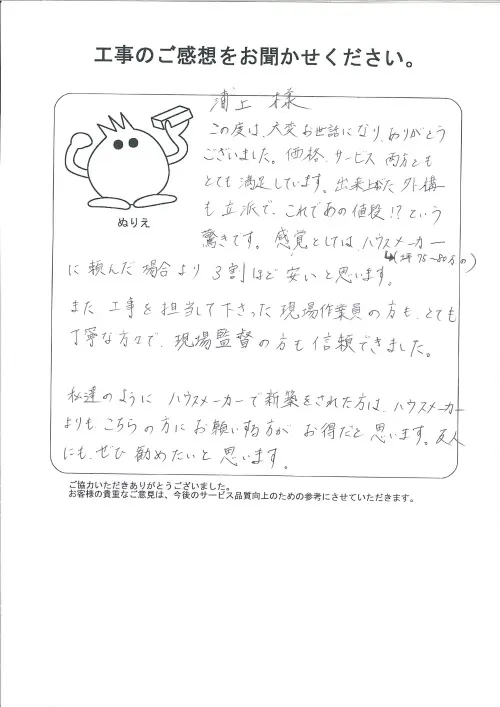 工事のご感想をお聞かせください。
浦上 様
この度は、大変お世話になり、ありがとう
ございました。価格、サービス 両方とも
とても満足しています。出来上がった 外構
も 立派で、これであの値段!?という
驚きです。感覚としては、ハウスメーカー
(坪75~80万の)
に 頼んだ 場合より 3割ほど 安いと思います。
また 工事を担当して下さった 現場作業員の方も、とても
丁寧な方々で、現場監督の方も信頼できました。
私達のように ハウスメーカーで新築をされた方は、ハウスメーカー
よりも こちらの方に お願いする方が お得だと思います。友人
にも、ぜひ 勧めたいと 思います。
ぬりえ
ご協力いただきありがとうございました。
お客様の貴重なご意見は、今後のサービス品質向上のための参考にさせていただきます。